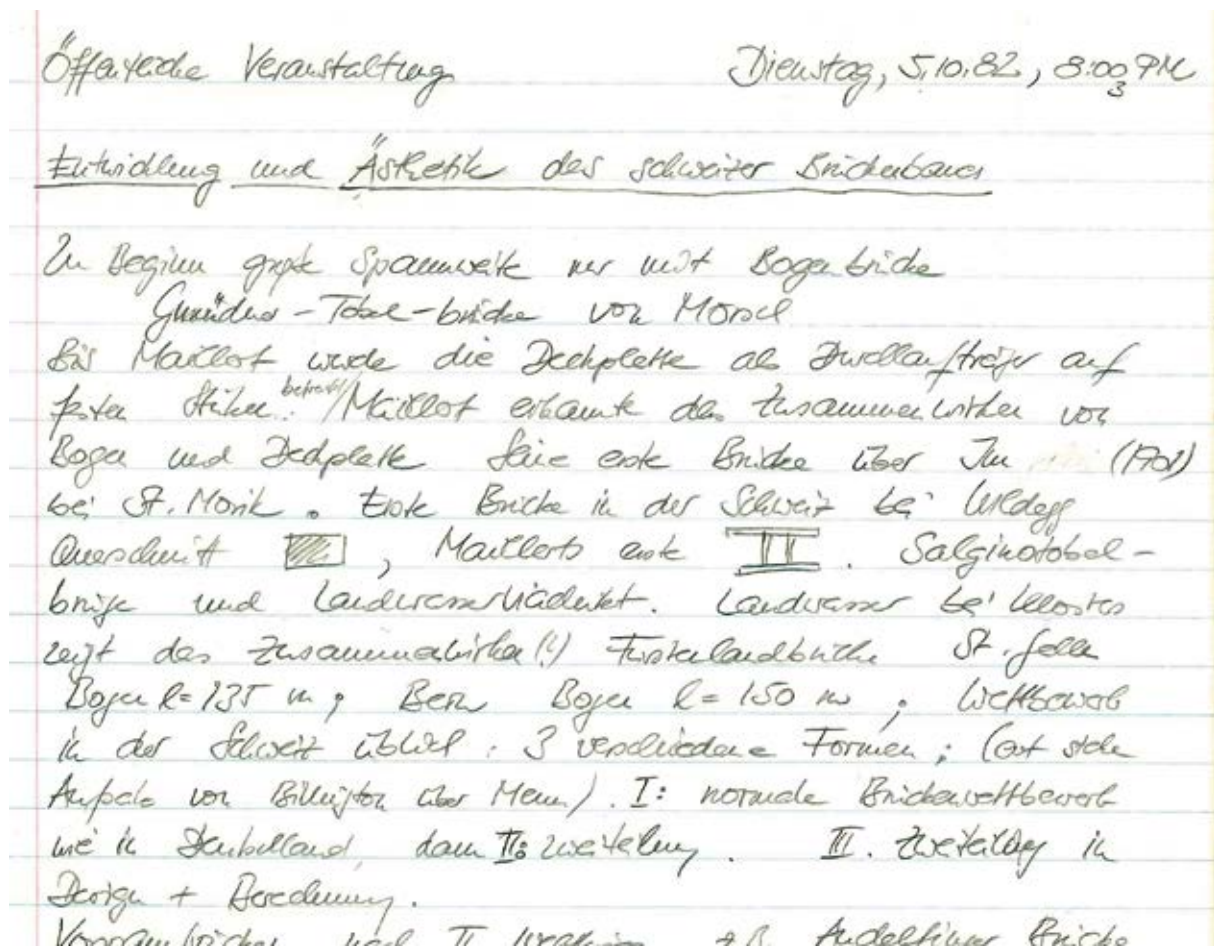 Öffentliche Veranstaltung Dienstag, 5.10.82, 8:00 PM
Entwicklung und Ästhetik des schweizer Brückenbaus
Zu Beginn große Spannweite nur mit Bogenbrücke
Gmündner-Tobel-brücke von Mörsch
Bis Maillart wurde die Deckplatte als Durchlaufträger auf
festen Stützen betracht. Maillart erkannte das Zusammenwirken von
Bogen und Deckplatte Seine erste Brücke über Inn (1901)
bei St. Moritz. Erste Brücke in der Schweiz bei Wildegg
Querschnitt , Maillarts erste . Salginatobel-
brüge und Landwasserviadukt. Landwasser bei Klosters
zeigt das Zusammenwirken(!) Fürstenlandbrücke St. Gallen
Bogen l=135 m; Bern Bogen l=150 m; Wettbewerb
in der Schweiz üblich: 3 verschiedene Formen; (
von Billington über Menn). I: normale Brückenwettbewerb
wie in Deutschland, dann II: zweiteilung. III. Zweiteilung in
Design + Berechnung.
nach II Andelfinger Brücke